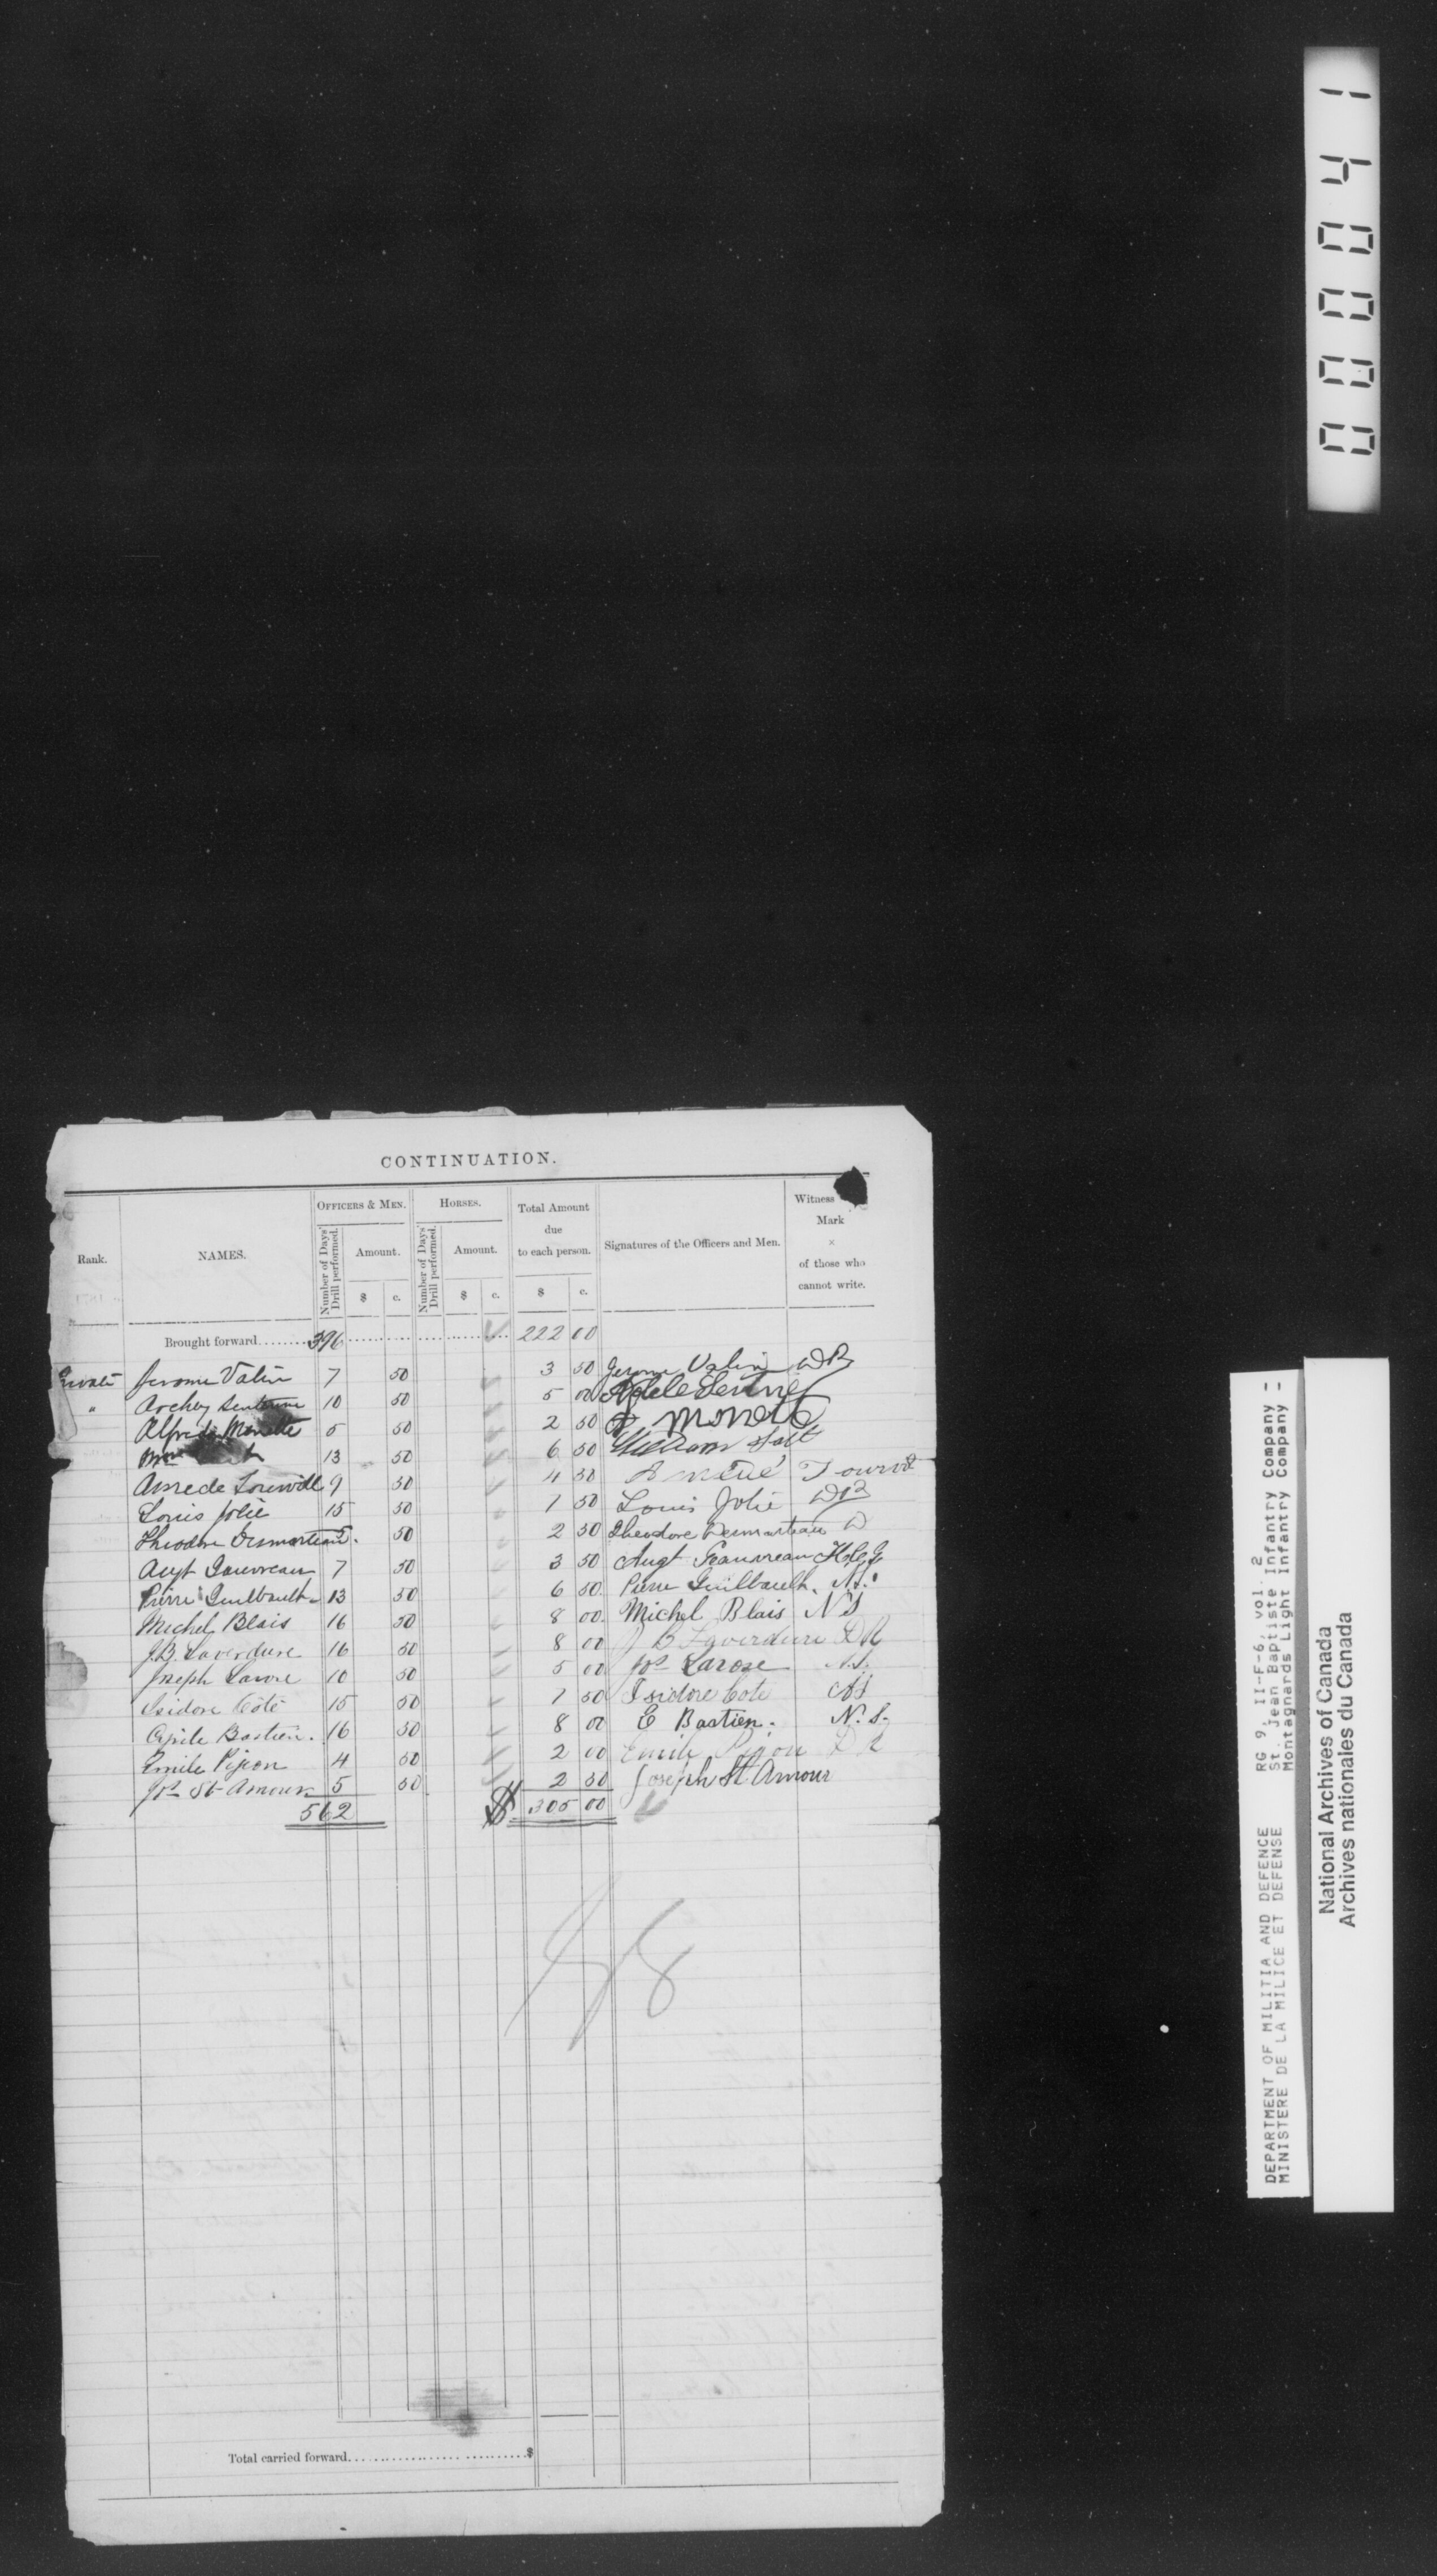 00041
CONTINUATION.
Rank.
NAMES.
OFFICERS & MEN.
Number of Days' Drill performed.
Amount.
$ c.
HORSES.
Number of Days' Drill performed.
Amount.
$ c.
Total Amount
due
to each person.
$ c.
Signatures of the Officers and Men.
Witness
Mark
×
of those who
cannot write.
Brought forward........396 222 00
Private Jerome Valin 7 50 3 50 Jerome Valin
" Archey 10 50 5 00
Alfred Monette 5 50 2 50 Monette
Wm 13 50 6 50 William
Amede 9 50 4 50
Louis Jolie 15 50 7 50 Louis Jolie
Theodore Desmarteau 5 50 2 50 Theodore Desmarteau D
Augt Gauvreau 7 50 3 50 Augt Gauvreau
Pierre Guilbault 13 50 6 50 Pierre Guilbault. N.S.
Michel Blais 16 50 8 00 Michel Blais N S
J.B. Laverdure 16 50 8 00 J B Laverdure D R
Joseph Larose 10 50 5 00 Jos Larose N.S.
Isidore Côté 15 50 7 50 Isidore Cote NS
Bastien. 16 50 8 00 E Bastien. N. S.
Emile Pijon 4 50 2 00 Emile Pijon D R
Jos St-Amour 5 50 2 50 Joseph St Amour
562 $ 305 00
48
Total carried forward....................$
DEPARTMENT OF MILITIA AND DEFENCE RG 9, II-F-6, vol. 2
MINISTERE DE LA MILICE ET DEFENSE St. Jean Baptiste Infantry Company -
Montagnards Light Infantry Company -
National Archives of Canada
Archives nationales du Canada